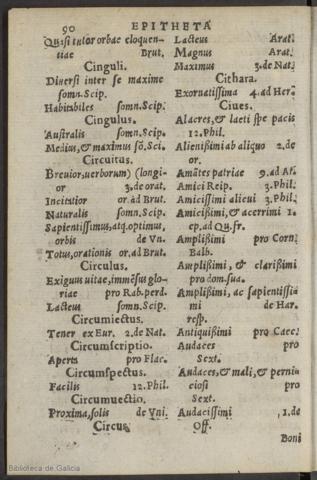 90 EPITHETA
Quasi tutor orbae eloquen-
tiae Brut.
Cinguli.
Diuersi inter se maxime
somn.Scip.
Habitabiles somn.Scip.
Cingulus.
Australis somn.Scip.
Medius,& maximus sō.Sci.
Circuitus.
Breuior,uerborum) (longi-
or 3.de orat.
Incitatior or.ad Brut.
Naturalis somn.Scip.
Sapientissimus,atq;optimus,
orbis de Vn.
Totus,orationis or.ad Brut.
Circulus.
Exiguus uitae,immēsus glo-
riae pro Rab.perd.
Lacteus somn.Scip.
Circumiectus.
Tener ex Eur. 2.de Nat.
Circumscriptio.
Aperta pro Flac.
Circumspectus.
Facilis 12.Phil.
Circumuectio.
Proxima,solis de Vni.
Circus
Lacteus Arat.
Magnus Arat.
Maximus 3.de Nat.
Cithara.
Exornatissima 4.ad Her.
Ciues.
Alacres,& laeti spe pacis
12.Phil.
Alienißimi ab aliquo 2.de
or.
Amātes patriae 9.ad At.
Amici Reip. 3.Phil.
Amicissimi alicui 3.Phil.
Amicißimi,& acerrimi 1.
ep.ad Qu.fr.
Amplißimi pro Corn.
Balb.
Amplißimi, & clarißimi
pro dom.sua.
Amplißimi, ac sapientissi
mi de Har.
resp.
Antiquißimi pro Caec.
Audaces pro
Sext.
Audaces,& mali, & perni
ciosi pro
Sext.
Audacissimi 1.de
Off.
Boni
Biblioteca de Galicia